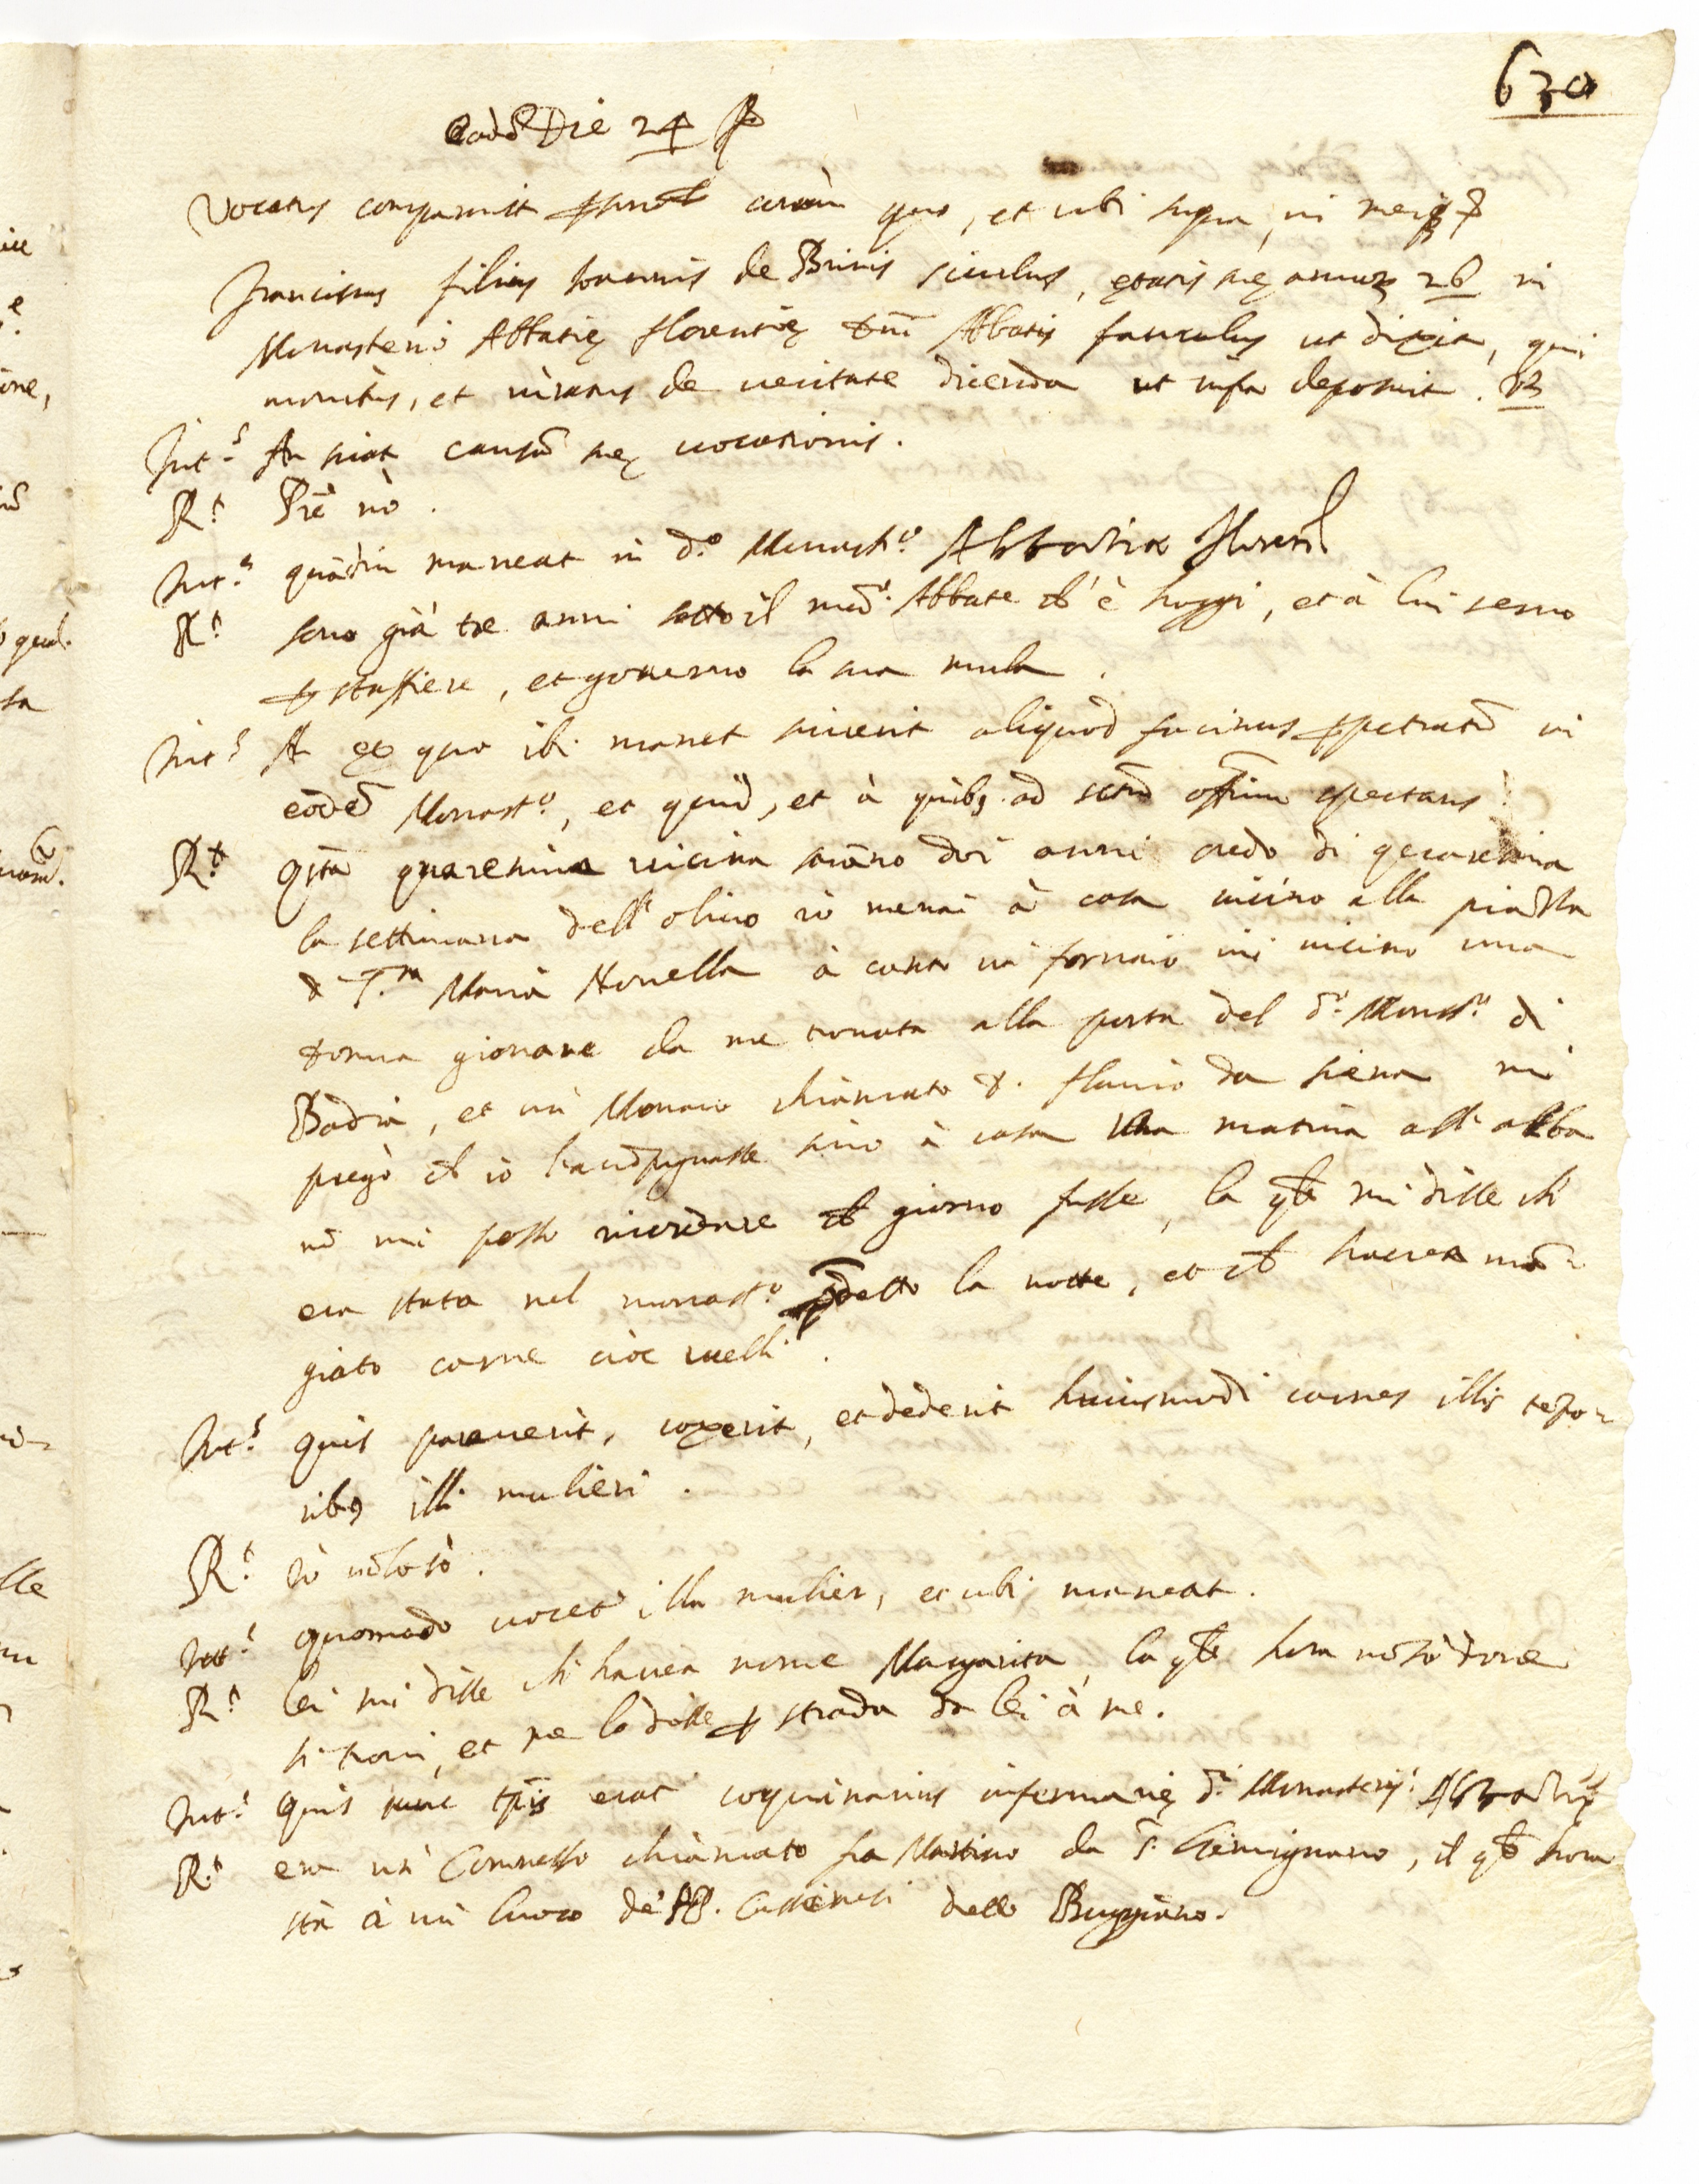 630
Eadē Die 24 
Vocatus comparuit psonalr coràm quo, et ubi supra, in meiq p
Franciscus filius Ioannis de Brinis siculus, ętatis suę annorum 26 in
Monasterio Abbatię Florentię Dni Abbatis famulus ut dixit, qui
monitus, et iuratus de veritate dicenda ut infra deposuit. 
Int.s An sciat causā suę vocationis.
R.t Pre nò.
Int.s quādiu maneat in d.o Monast.o Abbatiæ Floren
R.t sono già tre anni sotto il mēd. Abbate ch' è hoggi, et à lui servo
p staffiere, et governo la sua mula.
Int.s An ex quo ibi manet sciverit aliquod facinus ppetratū in
eodē Monast.o, et quid, et à quibus ad sctū offium spectans
R.t Qsta quaresima vicina saràno doi anni credo di quaresima
la settimana dell' olivo io menai à casa vicino alla piazza
d S.ta Maria Novella à canto un' fornaio ivi vicino una
donna giovane da me trovata alla porta del d.o Monast.o di
Badia, et un' Monaco chiamato D. Flavio da Siena mi
pregò ch io l'accōpagnasse sino à casa una matina all' alba
nō mi posso ricordare ch giorno fusse, la qle mi disse ch
era stata nel monast.o pdetto la notte, et ch havea mā=
giato carne cioè vitelli.
Int.s quis paraverit, coxerit, et dederit huiusmodi carnes illis tēpo=
ribus illi mulieri.
R.t Io nō lo sò.
Int.s quomodo vocet illa mulier, et ubi maneat.
R.t lei mi disse ch havea nome Margarita, la qle hora nō sò dove
si trovi, et me lo disse p strada da lei à me.
Int.s Quis tunc tpis erat coquinarius infermarię d.i Monasterij Abbatiæ
R.t era un' Commesso chiamato fra Martino da S. Gimignano, il qle hora
stà à un' luoco de' PP. Cassinesi detto Buggiano.